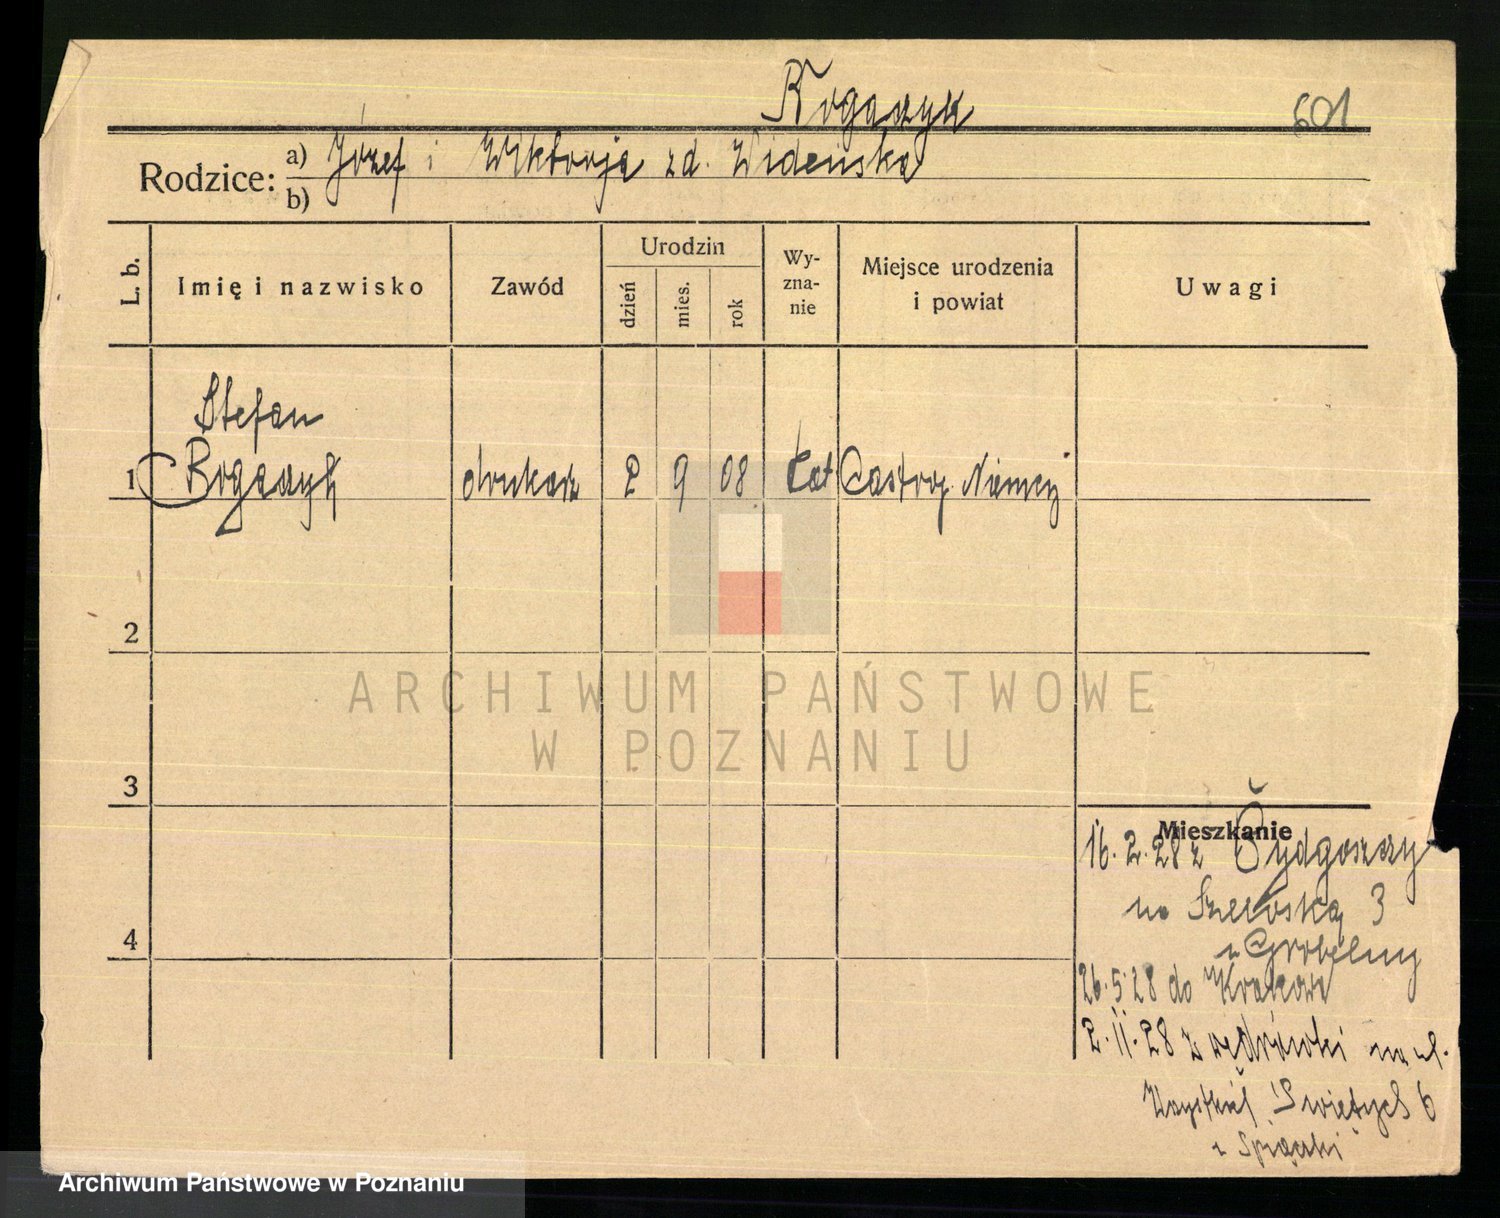 Rogaczyk
601
Rodzice: a) Józef i Wiktorja zd. Wideńska
b)
L. b. Imię i nazwisko Zawód Urodzin dzień mies. rok Wyznanie Miejsce urodzenia i powiat Uwagi
Stefan
1 Rogaczyk drukarz 2 9 08 kat Castrop. Niemcy
2
ARCHIWUM PAŃSTWOWE
W POZNANIU
3
Mieszkanie
16.2.28 z Bydgoszczy
na 3
u Grobelny
4
26.5.28 do Krakowa
2.11.28 z wędrówki na ul.
Wszystkich Świętych 6
Archiwum Państwowe w Poznaniu